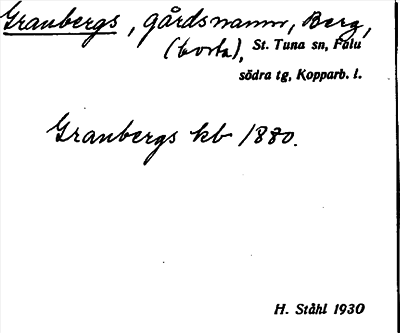 Granbergs, gårdsnamn, Berg,
(borta), St. Tuna sn, Falu
södra tg, Kopparb. l.
Granbergs kb 1880.
H. Ståhl 1930